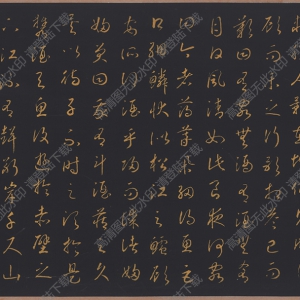 顧而樂之行歌相答已而
歎曰有客無酒有酒無肴
月白風清如此良夜何客
曰今者薄暮舉網得魚巨
口細鱗狀似松江之鱸顧
安所得酒乎歸而謀諸婦
婦曰我有斗酒藏之久
矣以待子不時之須於是
攜酒與魚復遊於赤壁之
下江流有聲斷岸千尺山